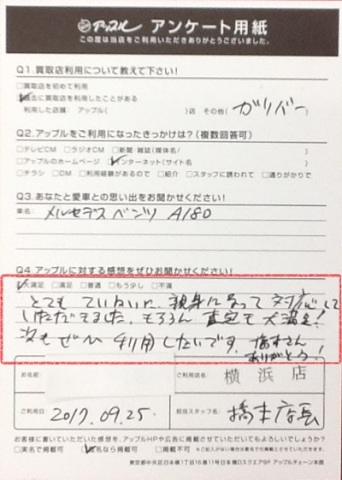 アップル アンケート用紙
この度は当店をご利用いただきありがとうございました。
Q1.買取店利用について教えて下さい!
□買取店を初めて利用
☑過去に買取店を利用したことがある
利用した店舗:アップル( )店 その他( ガリバー )
Q2.アップルをご利用になったきっかけは?(複数回答可)
□テレビCM □ラジオCM □新聞・雑誌(媒体名/ )
□アップルのホームページ ☑インターネット(サイト名 )
□チラシ □DM □利用経験があるので □紹介 □スタッフに誘われて □通りがかりで
Q3.あなたと愛車との思い出をお聞かせください!
車名: メルセデスベンツ A180
Q4.アップルに対する感想をぜひお聞かせください!
☑大満足 □満足 □普通 □もう少し □不満
とても ていねいに、親身になって 対応して
いただきました。もちろん 査定も 大満足!
次も ぜひ 利用したいです。橋本さん
ありがとう!
お名前
ご利用店名 横浜店
ご利用日 2017.09.25.
担当スタッフ名 橋本店長
お客様に書いていただいた感想を、アップルHPや広告に掲載させていただいてもよろしいでしょうか?
□実名で掲載可 ☑匿名なら掲載可 □掲載不可
東京都中央区日本橋1丁目16番11号日本橋Dスクエア5F アップルチェーン本部